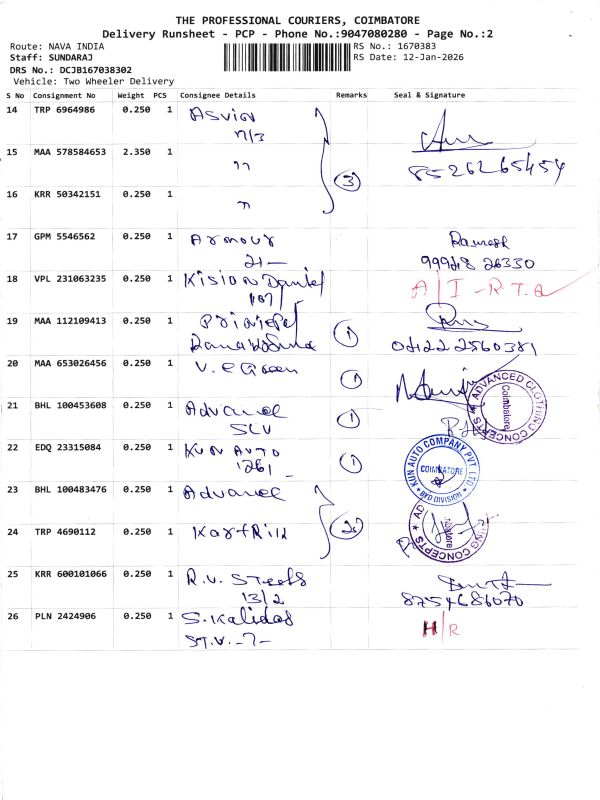 THE PROFESSIONAL COURIERS, COIMBATORE
Delivery Runsheet - PCP - Phone No.:9047080280 - Page No.:2
Route: NAVA INDIA RS No.: 1670383
Staff: SUNDARAJ RS Date: 12-Jan-2026
DRS No.: DCJB167038302
Vehicle: Two Wheeler Delivery
S No Consignment No Weight PCS Consignee Details Remarks Seal & Signature
14 TRP 6964986 0.250 1 Asvin
17/3
15 MAA 578584653 2.350 1 " 3 8526265454
16 KRR 50342151 0.250 1 "
17 GPM 5546562 0.250 1 Armour Ramesh
21- 99948 26330
18 VPL 231063235 0.250 1 Kision Daniel A/I - R.T.O
107/
19 MAA 112109413 0.250 1 1
04222560381
20 MAA 653026456 0.250 1 V. e Green 1
21 BHL 100453608 0.250 1 Advancel 1 ADVANCED CLOTHING CONCEPTS Coimbatore
SLV
22 EDQ 23315084 0.250 1 KUN AUTO 1 KUN AUTO COMPANY PVT. LTD COIMBATORE BPO DIVISION
1261
23 BHL 100483476 0.250 1 Advancel
24 TRP 4690112 0.250 1 Kart Rill 2
25 KRR 600101066 0.250 1 R.V. Steels
13/2 8754686070
26 PLN 2424906 0.250 1 S. Kalidas H/R
ST.V. -7-